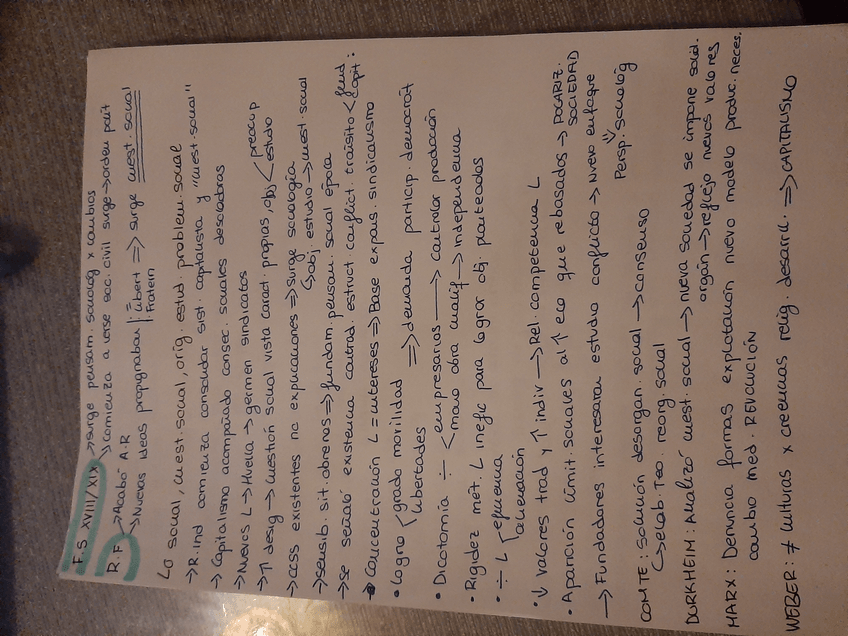 F.S XVIII/XIX → surge pensam. sociológ x cambios
↘ comienza a verse soc. civil surge → orden polít
R.F → Acabó A.R
→ Nuevas ideas propugnaban | = libert Fratern ⇒ surge cuest. social
Lo social, cuest. social, orig. estud. problem. social
→ R. Ind comienza consolidar sist. capitalista y "cuest. social"
→ Capitalismo acompañado consec. sociales descadoras
→ Nuevos L → Huella → germen sindicatos
→ ↑ desig → cuestión social vista caract. propias, obj < preocup estudio
→ CCSS existentes no explicaciones ⇒ surge sociología
↳ obj. estudio → cuest. social
→ sensib. sit. obreros ⇒ fundam. pensam. social época
→ se señaló existencia contrad. estruct. conflict. tránsito < feud capit :
Concentración L = intereses ⇒ Base expans. sindicalismo
• Logro < grado movilidad libertades ⇒ demanda particip. democrát
• Dicotomía ÷ < empresarios → controlar producción
mano obra cualif → independencia
• Rigidez mét. L inefic para lograr obj. planteados
• ÷ L < eficiencia alienación
• ↓ valores trad y ↑ indiv → Rel. competencia L
• Aparición límit. sociales al ↑ eco que rebasados → POLARIZ. SOCIEDAD
→ Fundadores interesaran estudio conflicto → nuevo enfoque
Persp. sociológ
COMTE: solución desorgan. social → consenso
↳ elab. Teo. reorg social
DURKHEIM: Analizó cuest. social → nueva sociedad se impone solid.
orgán → reflejo nuevos valores
MARX: Denuncia formas explotación nuevo modelo produc. neces.
cambio med. REVOLUCIÓN
WEBER: ≠ culturas x creencias relig. desarroll. ⇒ CAPITALISMO